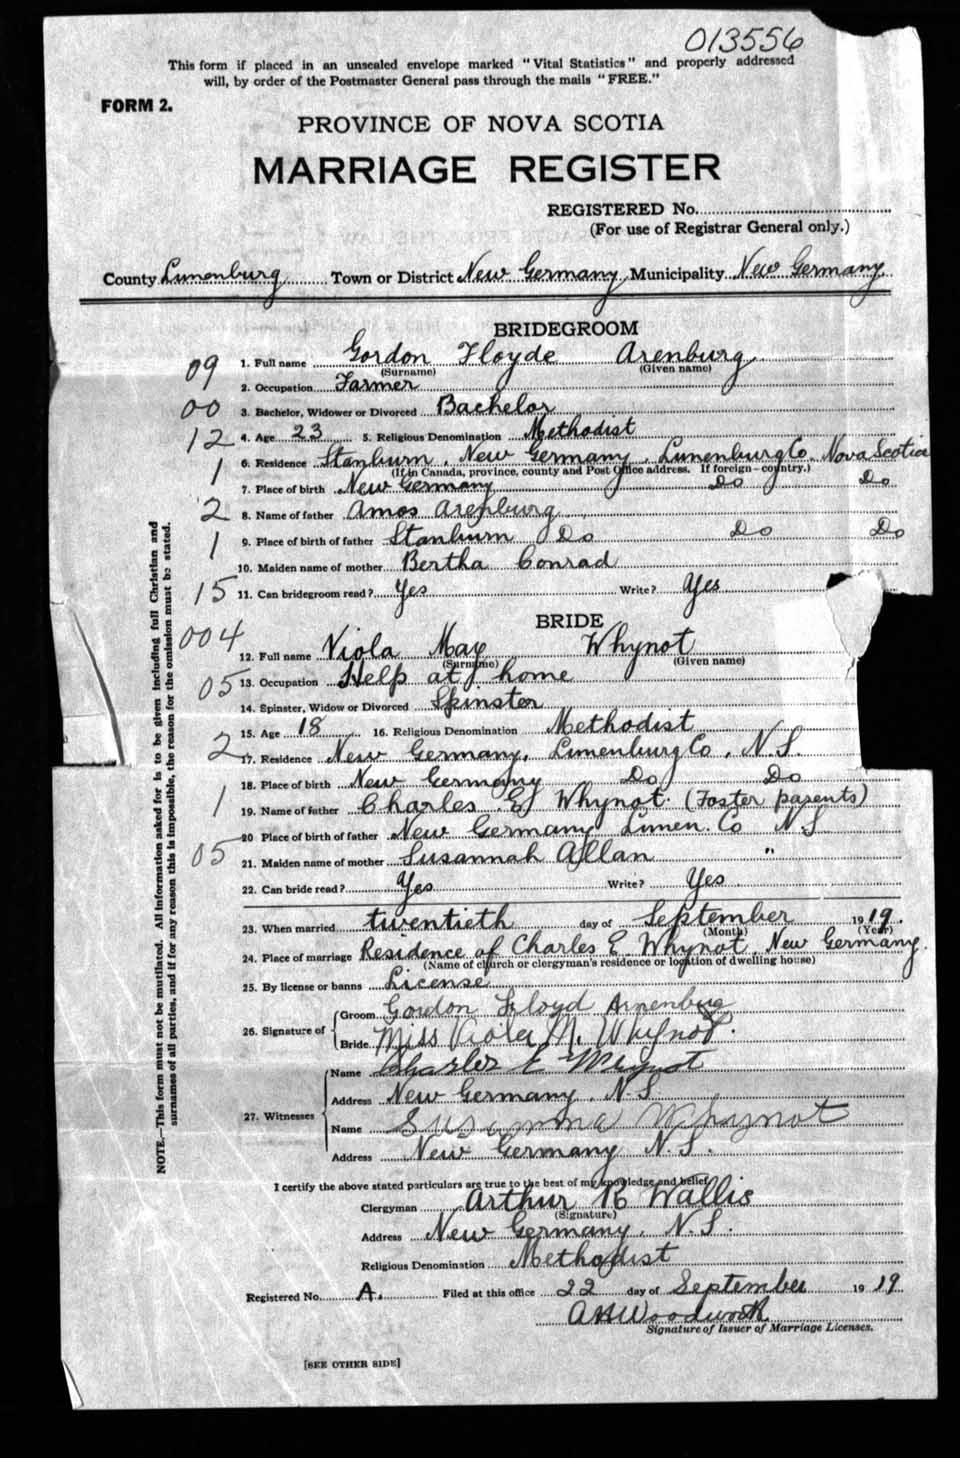 013556
This form if placed in an unsealed envelope marked "Vital Statistics" and properly addressed
will, by order of the Postmaster General pass through the mails "FREE."
FORM 2.
PROVINCE OF NOVA SCOTIA
MARRIAGE REGISTER
REGISTERED No.
(For use of Registrar General only.)
County Lunenburg Town or District New Germany Municipality New Germany
BRIDEGROOM
09 1. Full name Gordon Floyde Arenburg
(Surname) (Given name)
2. Occupation Farmer
00 3. Bachelor, Widower or Divorced Bachelor
12 4. Age 23 5. Religious Denomination Methodist
1 6. Residence Stanburn, New Germany, Lunenburg Co. Nova Scotia
(If in Canada, province, county and Post Office address. If foreign—country.)
7. Place of birth New Germany Do Do
2 8. Name of father Amos Arenburg
1 9. Place of birth of father Stanburn Do Do Do
10. Maiden name of mother Bertha Conrad
15 11. Can bridegroom read? Yes Write? Yes
BRIDE
004 12. Full name Viola May Whynot
(Surname) (Given name)
05 13. Occupation Help at home
14. Spinster, Widow or Divorced Spinster
15. Age 18 16. Religious Denomination Methodist
2 17. Residence New Germany, Lunenburg Co, N.S.
18. Place of birth New Germany Do Do
1 19. Name of father Charles E Whynot. (Foster parents)
20 Place of birth of father New Germany Lunen. Co N S
05 21. Maiden name of mother Susannah Allan "
22. Can bride read? Yes Write? Yes
23. When married twentieth day of September 1919.
(Month) (Year)
24. Place of marriage Residence of Charles E. Whynot, New Germany.
(Name of church or clergyman's residence or location of dwelling house)
25. By license or banns License
26. Signature of Groom Gordon Floyd Arnenburg
Bride Miss Viola M. Whynot.
27. Witnesses Name Charles E Whynot
Address New Germany, N.S
Name Susanna Whynot
Address New Germany N.S.
I certify the above stated particulars are true to the best of my knowledge and belief,
Clergyman Arthur R Wallis
(Signature)
Address New Germany, N.S.
Religious Denomination Methodist
Registered No. A. Filed at this office 22 day of September 1919
Signature of Issuer of Marriage Licenses.
[SEE OTHER SIDE]
NOTE.—This form must not be mutilated. All information asked for is to be given including full Christian and
surnames of all parties, and if for any reason this is impossible, the reason for the omission must be stated.